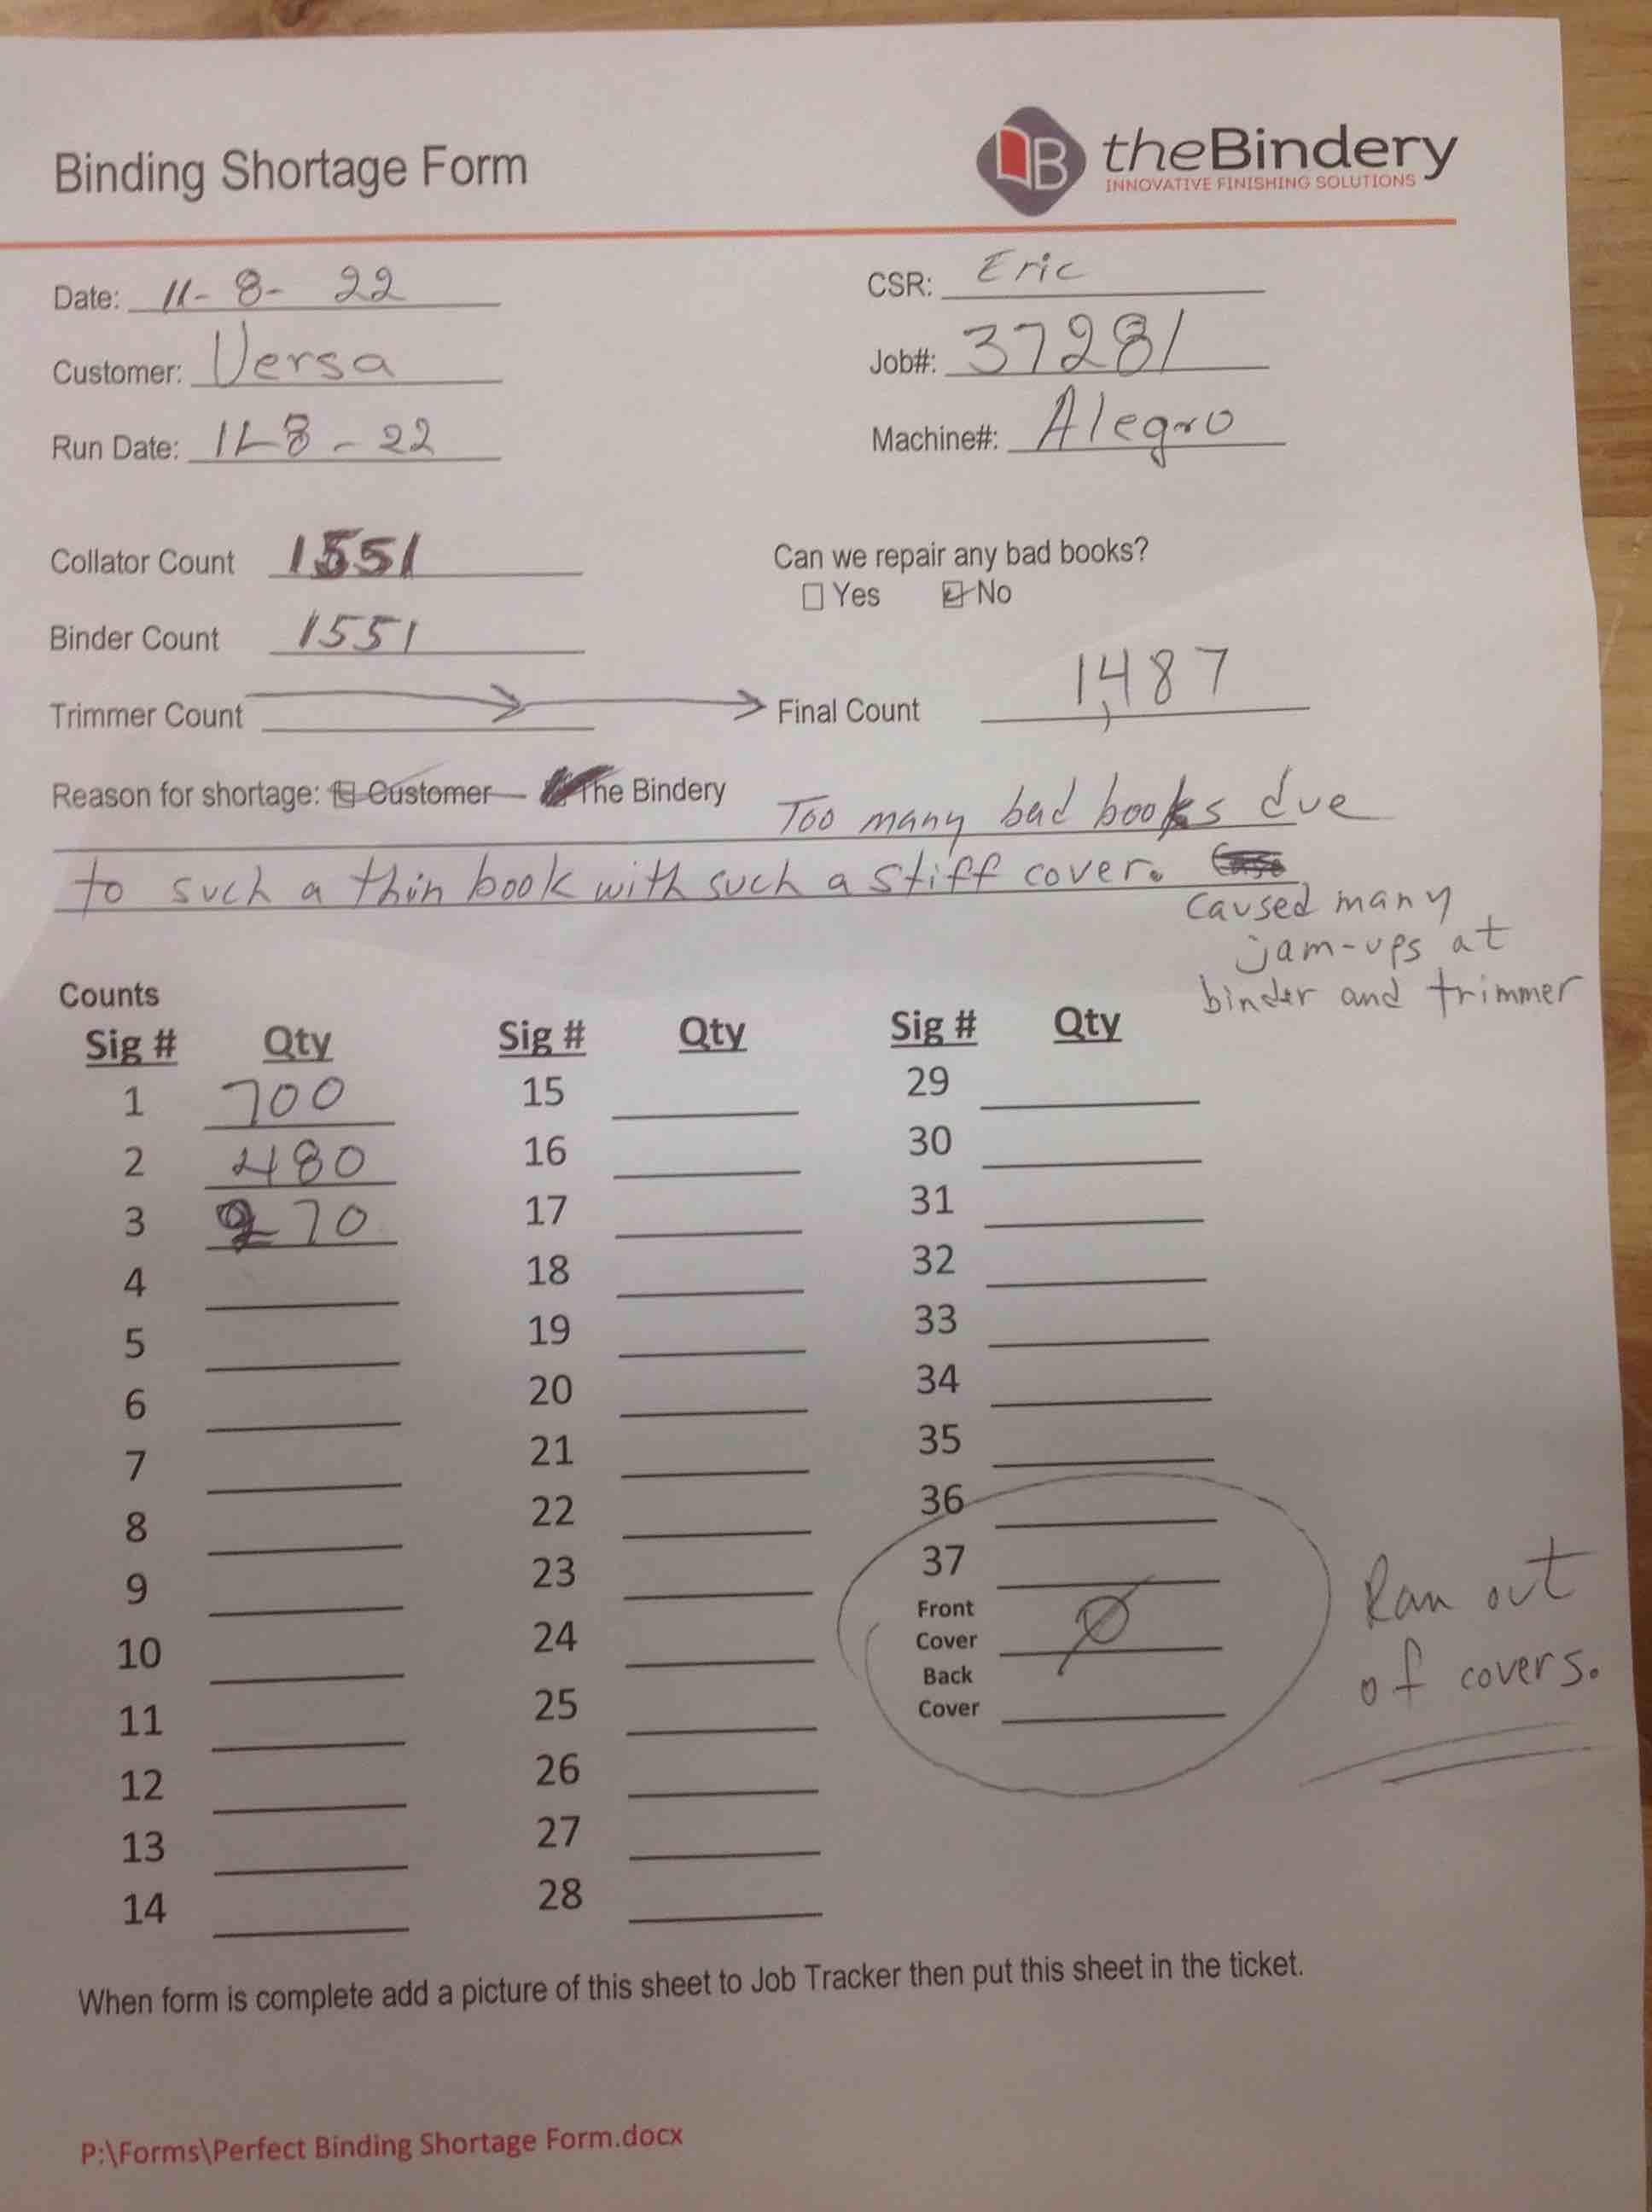 Binding Shortage Form
B theBindery
INNOVATIVE FINISHING SOLUTIONS
Date: 11-8-22 CSR: Eric
Customer: Versa Job#: 37281
Run Date: 11-8-22 Machine#: Alegro
Collator Count 1551 Can we repair any bad books?
Yes No
Binder Count 1551
Trimmer Count Final Count 1,487
Reason for shortage: Customer The Bindery Too many bad books due
to such a thin book with such a stiff cover.
caused many
jam-ups at
binder and trimmer
Counts
Sig # Qty Sig # Qty Sig # Qty
1 700 15 29
2 480 16 30
3 270 17 31
4 18 32
5 19 33
6 20 34
7 21 35
8 22 36
9 23 37
10 24 Front Cover Ø
11 25 Back Cover
Ran out
of covers.
12 26
13 27
14 28
When form is complete add a picture of this sheet to Job Tracker then put this sheet in the ticket.
P:\Forms\Perfect Binding Shortage Form.docx